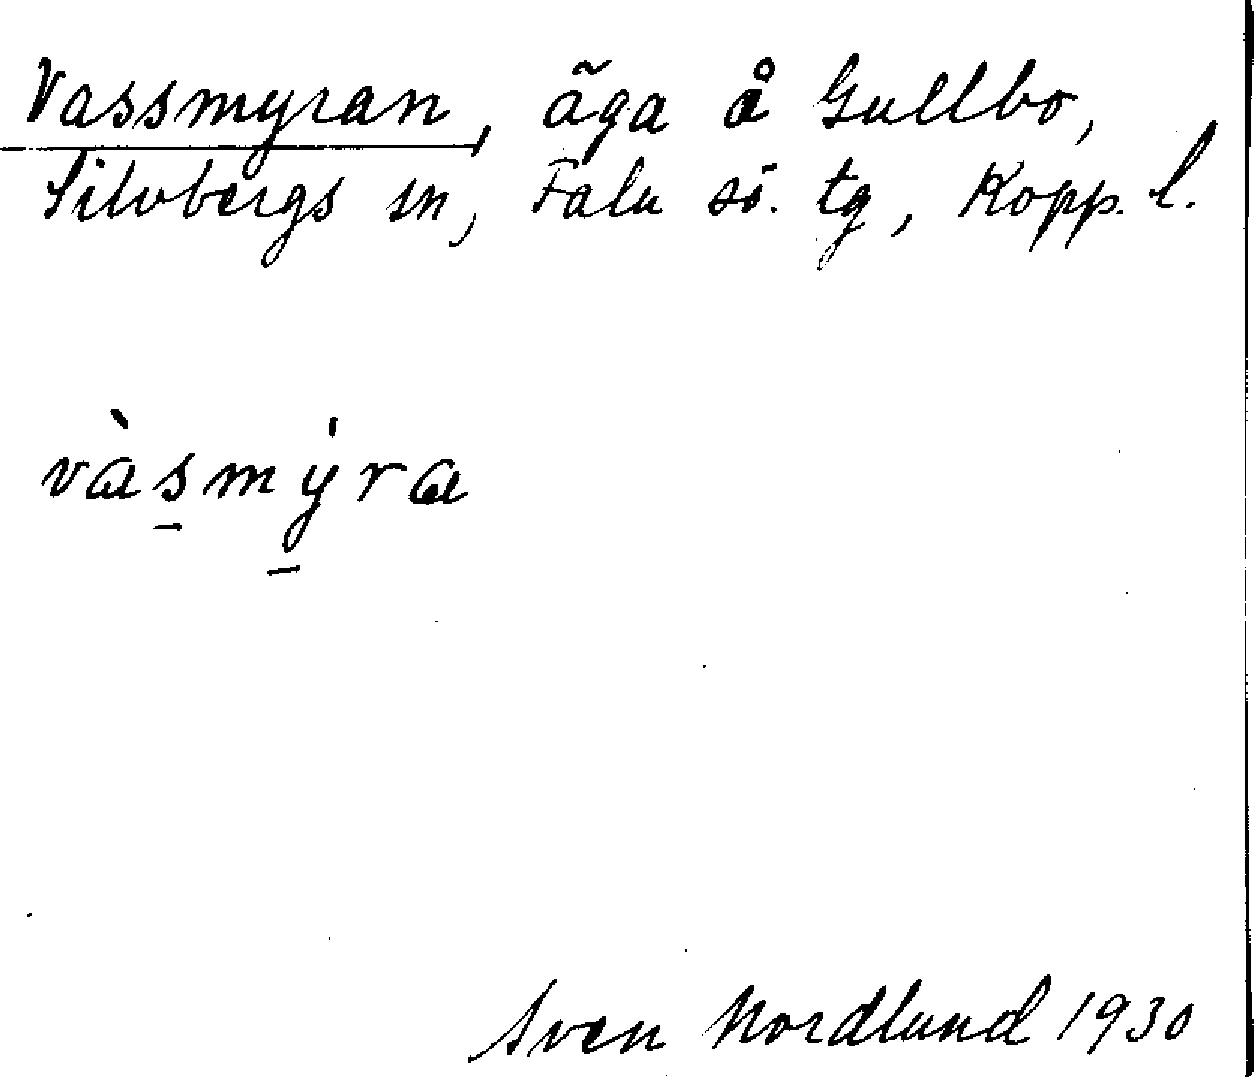 Vassmyran, äga å Gullbo,
Silvbergs sn, Falu sö. tg, Kopp. l.
vàs̠mý̠ra
Sven Nordlund 1930